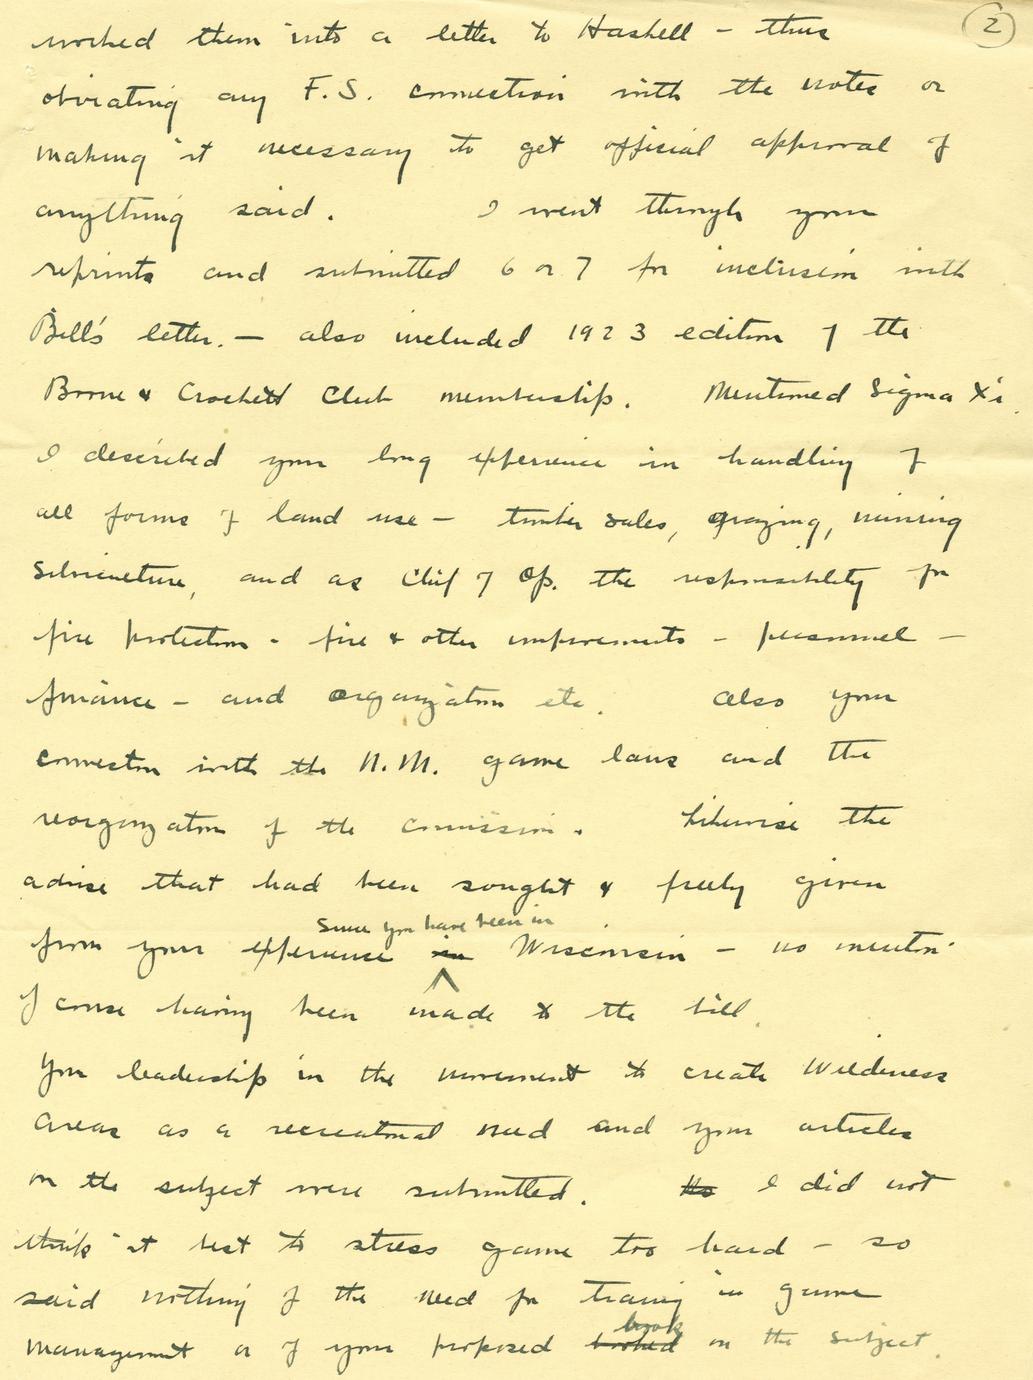 2
worked them into a letter to Haskell - thus
obviating any F.S. connection with the notes or
making it necessary to get official approval of
anything said. I went through your
reprints and submitted 6 or 7 for inclusion with
Bill's letter. — also included 1923 edition of the
Boone & Crockett Club membership. Mentioned Sigma Xi.
I described your long experience in handling of
all forms of land use — timber sales, grazing, mining
Silviculture, and as Chief of Op. the responsibility for
fire protection - fire & other improvements - personnel —
finance - and organization etc. also your
connection with the N.M. game laws and the
reorganization of the commission. Likewise the
advise that had been sought & freely given
since you have been in
from your experience in Wisconsin — no mention
of course having been made to the bill.
Your leadership in the movement to create Wilderness
Areas as a recreational need and your articles
on the subject were submitted. I did not
think it best to stress game too hard — so
said nothing of the need for training in game
book
management or of your proposed on the subject.